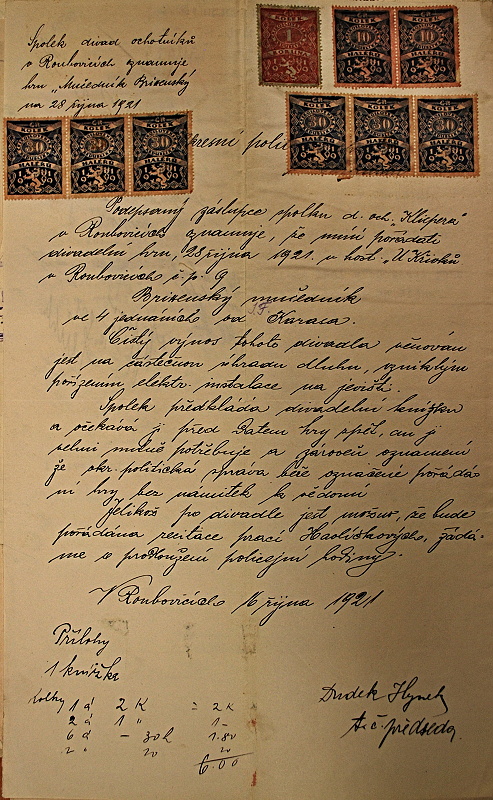 Spolek divad ochotníků
v Roubovicích oznamuje
hru „Mučedník Brixenský
na 28 října 1921
ČR
KOLEK
1
ČR
KOLEK
10
ČR
KOLEK
10
KOLEK
30
HALÉŘŮ
KOLEK
30
HALÉŘŮ
KOLEK
30
HALÉŘŮ
ČR
KOLEK
30
HALÉŘŮ
ČR
KOLEK
30
HALÉŘŮ
ČR
KOLEK
30
HALÉŘŮ
kresní poli
Podepsaný zástupce spolku d. och. „Klicpera"
v Roubovicích oznamuje, že míní pořádati
divadelní hru, 28 října 1921. v host. „U Křičků
v Roubovicích č. p. 9
Brixenský mučedník
ve 4 jednáních od Karasa.
Čistý výnos tohoto divadla věnován
jest na částečnou úhradu dluhu, vzniklým
pořízením elektr. instalace na jevišti.
Spolek předkládá divadelní knížku
a očekává ji před datem hry zpět, an ji
velmi nutně potřebuje a zároveň oznámení
že okr. politická správa béře oznášené pořádá-
ní hry bez námitek k vědomí
Jelikož po divadle jest možno, že bude
pořádána recitace prací Havlíčkových, žádá-
me o prodloužení policejní hodiny.
V Roubovicích 16 října 1921
Přílohy
1 knížka
Kolky 1 á 2 K = 2 K
2 á 1 " 1–
6 á – 30 h 1.80
2 " 20 20
6.00
Dudek Hynek
t. č. předseda.